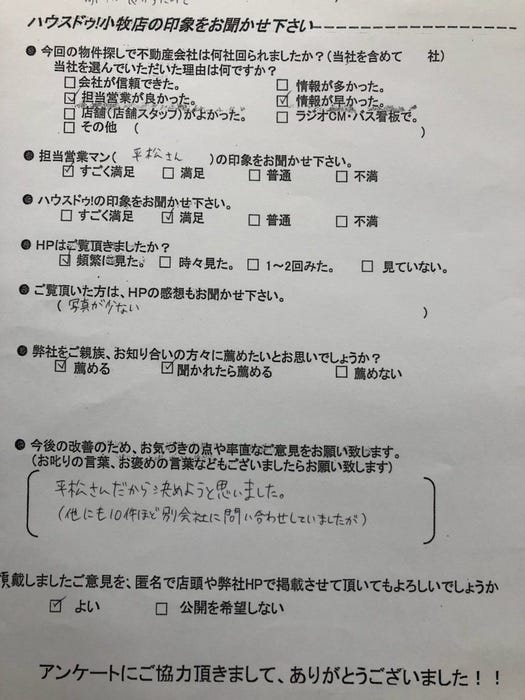 ハウスドゥ!小牧店の印象をお聞かせ下さい
● 今回の物件探しで不動産会社は何社回られましたか?(当社を含めて　　社)
当社を選んでいただいた理由は何ですか?
□会社が信頼できた。　□ 情報が多かった。
☑ 担当営業が良かった。　☑ 情報が早かった。
□ 店舗(店舗スタッフ)がよかった。　□ ラジオCM・バス看板で。
□ その他　(　　　)
● 担当営業マン( 平松さん )の印象をお聞かせ下さい。
☑ すごく満足　□ 満足　□ 普通　□ 不満
● ハウスドゥ!の印象をお聞かせ下さい。
□ すごく満足　☑ 満足　□ 普通　□ 不満
● HPはご覧頂きましたか?
☑ 頻繁に見た。　□ 時々見た。　□ 1～2回みた。　□ 見ていない。
● ご覧頂いた方は、HPの感想もお聞かせ下さい。
( 写真が少ない )
● 弊社をご親族、お知り合いの方々に薦めたいとお思いでしょうか?
☑ 薦める　☑ 聞かれたら薦める　□ 薦めない
● 今後の改善のため、お気づきの点や率直なご意見をお願い致します。
(お叱りの言葉、お褒めの言葉などもございましたらお願い致します)
平松さんだから決めようと思いました。
(他にも10件ほど別会社に問い合わせしていましたが)
頂戴しましたご意見を、匿名で店頭や弊社HPで掲載させて頂いてもよろしいでしょうか
☑ よい　□ 公開を希望しない
アンケートにご協力頂きまして、ありがとうございました!!